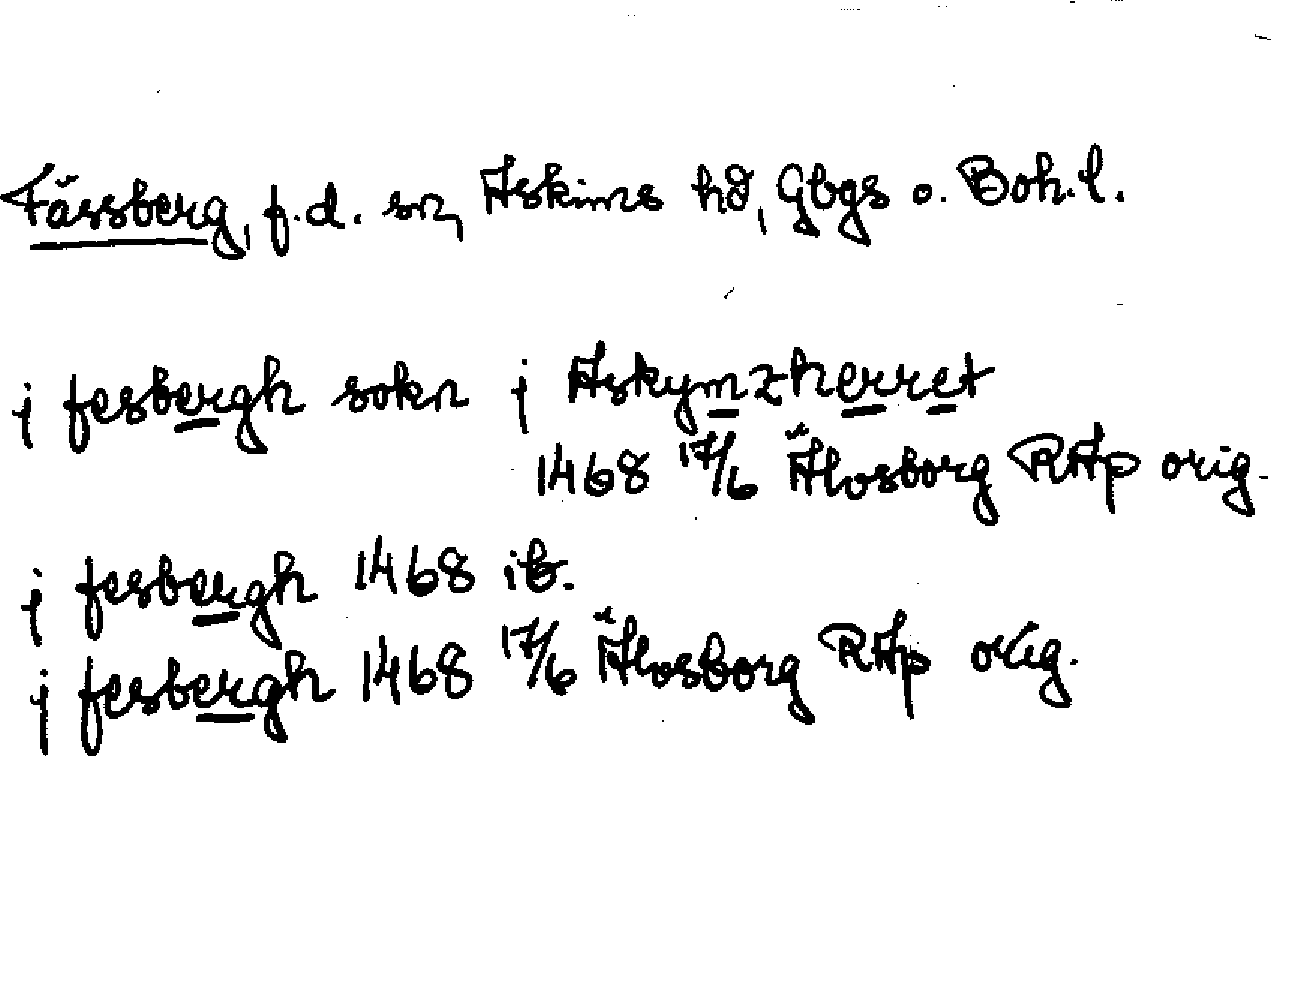 Fässberg, f.d. sn, Askims hd, Gbgs o. Boh. l.
j fesbergh sokn j Askymzherret
1468 17/6 Älvsborg RAp orig.
j fesbergh 1468 ib.
j fesbergh 1468 17/6 Älvsborg RAp orig.